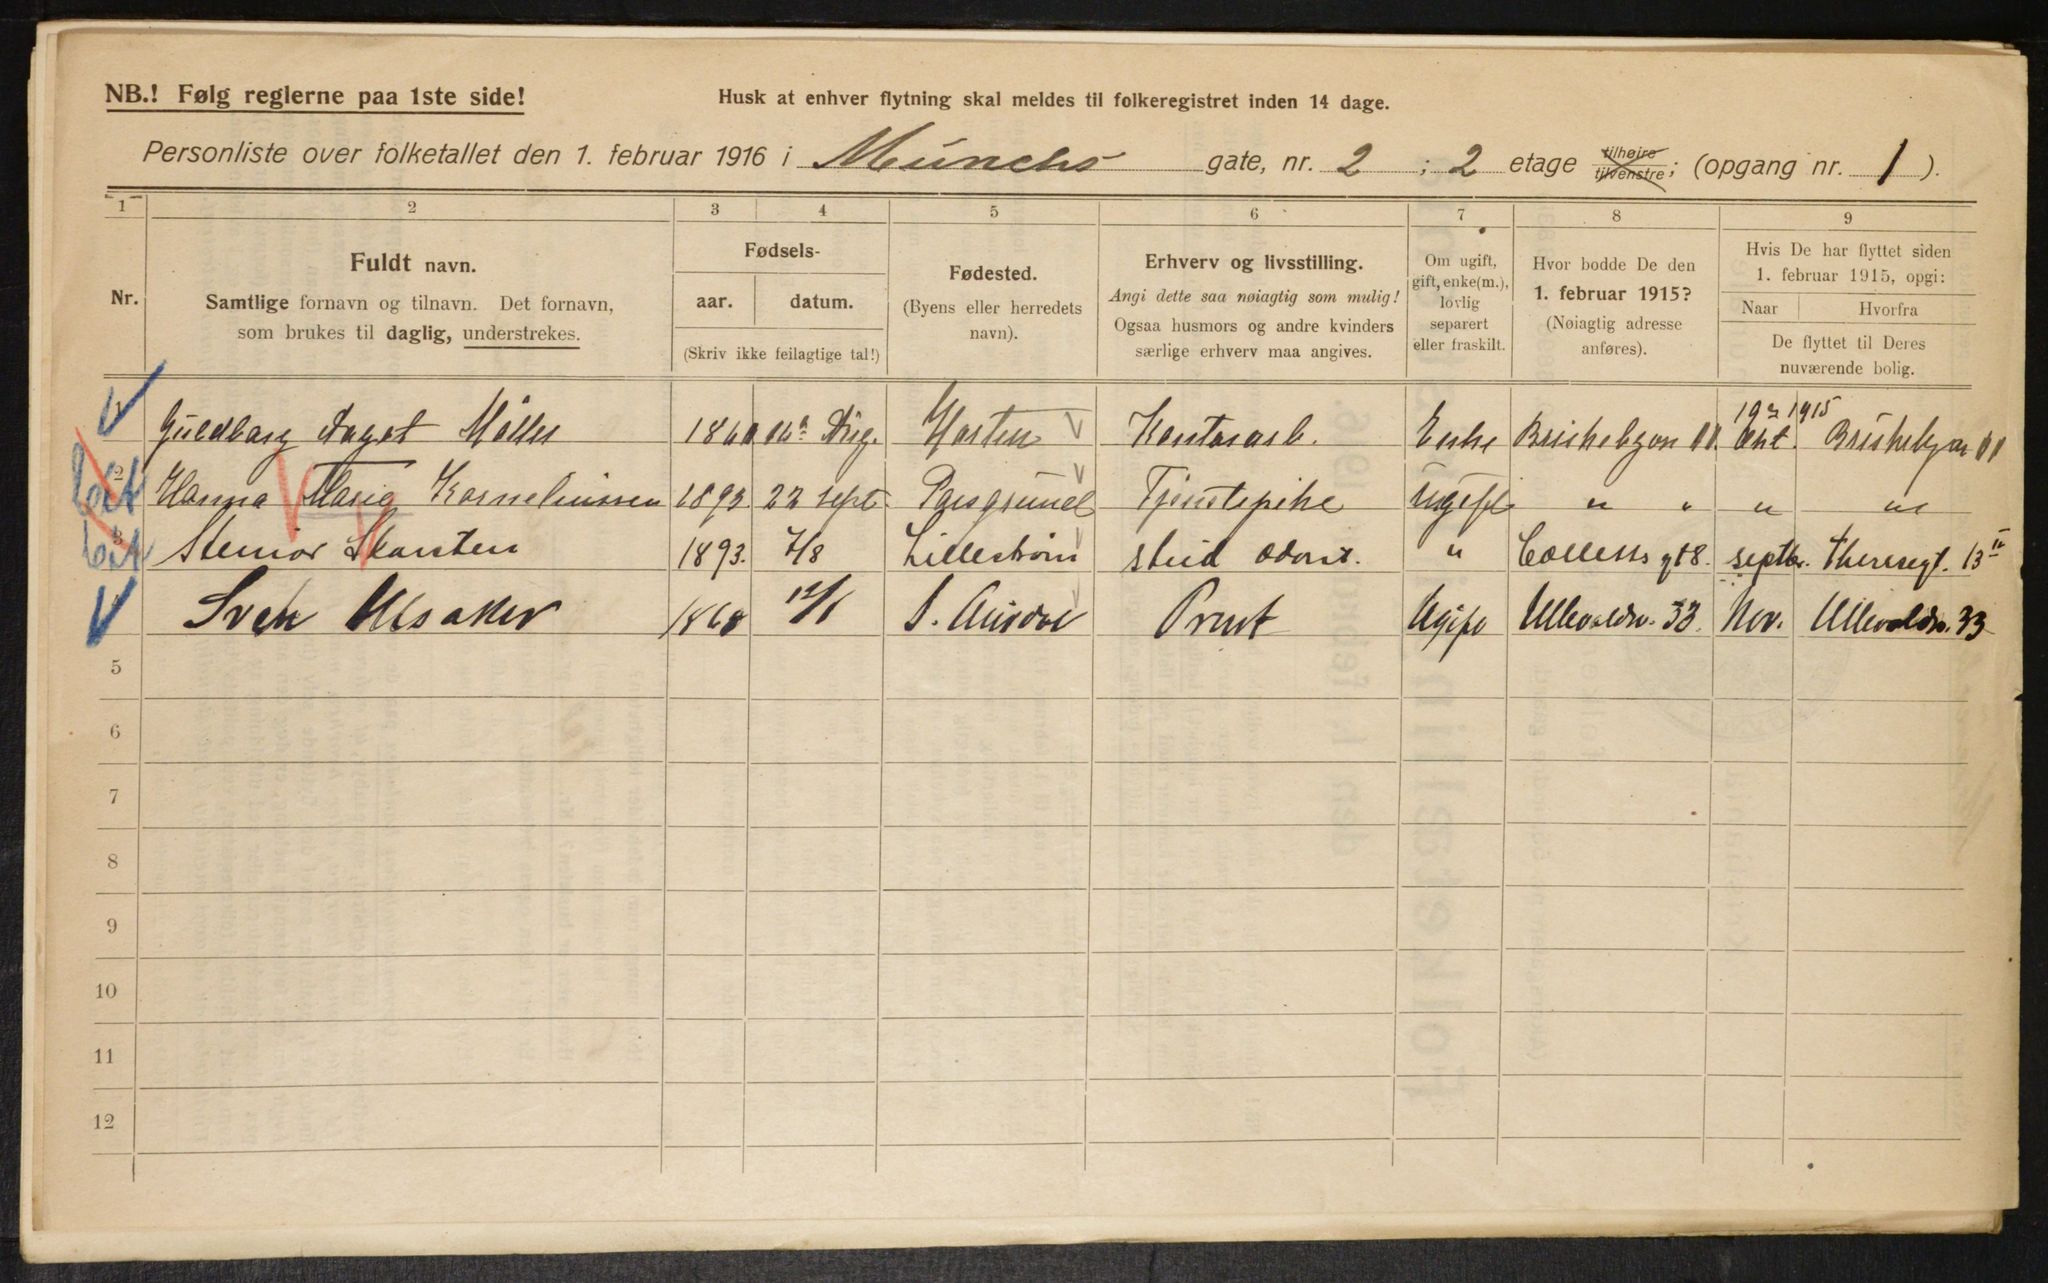 NB.! Følg reglerne paa 1ste side!
Husk at enhver flytning skal meldes til folkeregistret inden 14 dage.
Personliste over folketallet den 1. februar 1916 i Munchs gate, nr. 2 ; 2 etage tilhøire tilvenstre; (opgang nr. 1 ).
1 2 3 4 5 6 7 8 9
Nr.
Fuldt navn.
Samtlige fornavn og tilnavn. Det fornavn,
som brukes til daglig, understrekes.
Fødsels-
aar. datum.
(Skriv ikke feilagtige tal!)
Fødested.
(Byens eller herredets
navn).
Erhverv og livsstilling.
Angi dette saa nøiagtig som mulig!
Ogsaa husmors og andre kvinders
særlige erhverv maa angives.
Om ugift,
gift, enke(m.),
lovlig
separert
eller fraskilt.
Hvor bodde De den
1. februar 1915?
(Nøiagtig adresse
anføres).
Hvis De har flyttet siden
1. februar 1915, opgi:
Naar Hvorfra
De flyttet til Deres
nuværende bolig.
Guldborg Møller Aug. Horten Enke Okt. 1915
2 Hanna Marie Korneliussen 1893 22 sept. Porsgrund Tjenestepike ugift " " " "
3 Steinar Skarsten 1893. 7/8 Lillestrøm stud odont. " Colletts gt 8. septbr. Theresegt. 13
Sven Ulsaker 1868 12/1 S. Aurdal Prest Ugift Ullevoldsv. 33. Nov. Ullevoldsv. 33
5
6
7
8
9
10
11
12